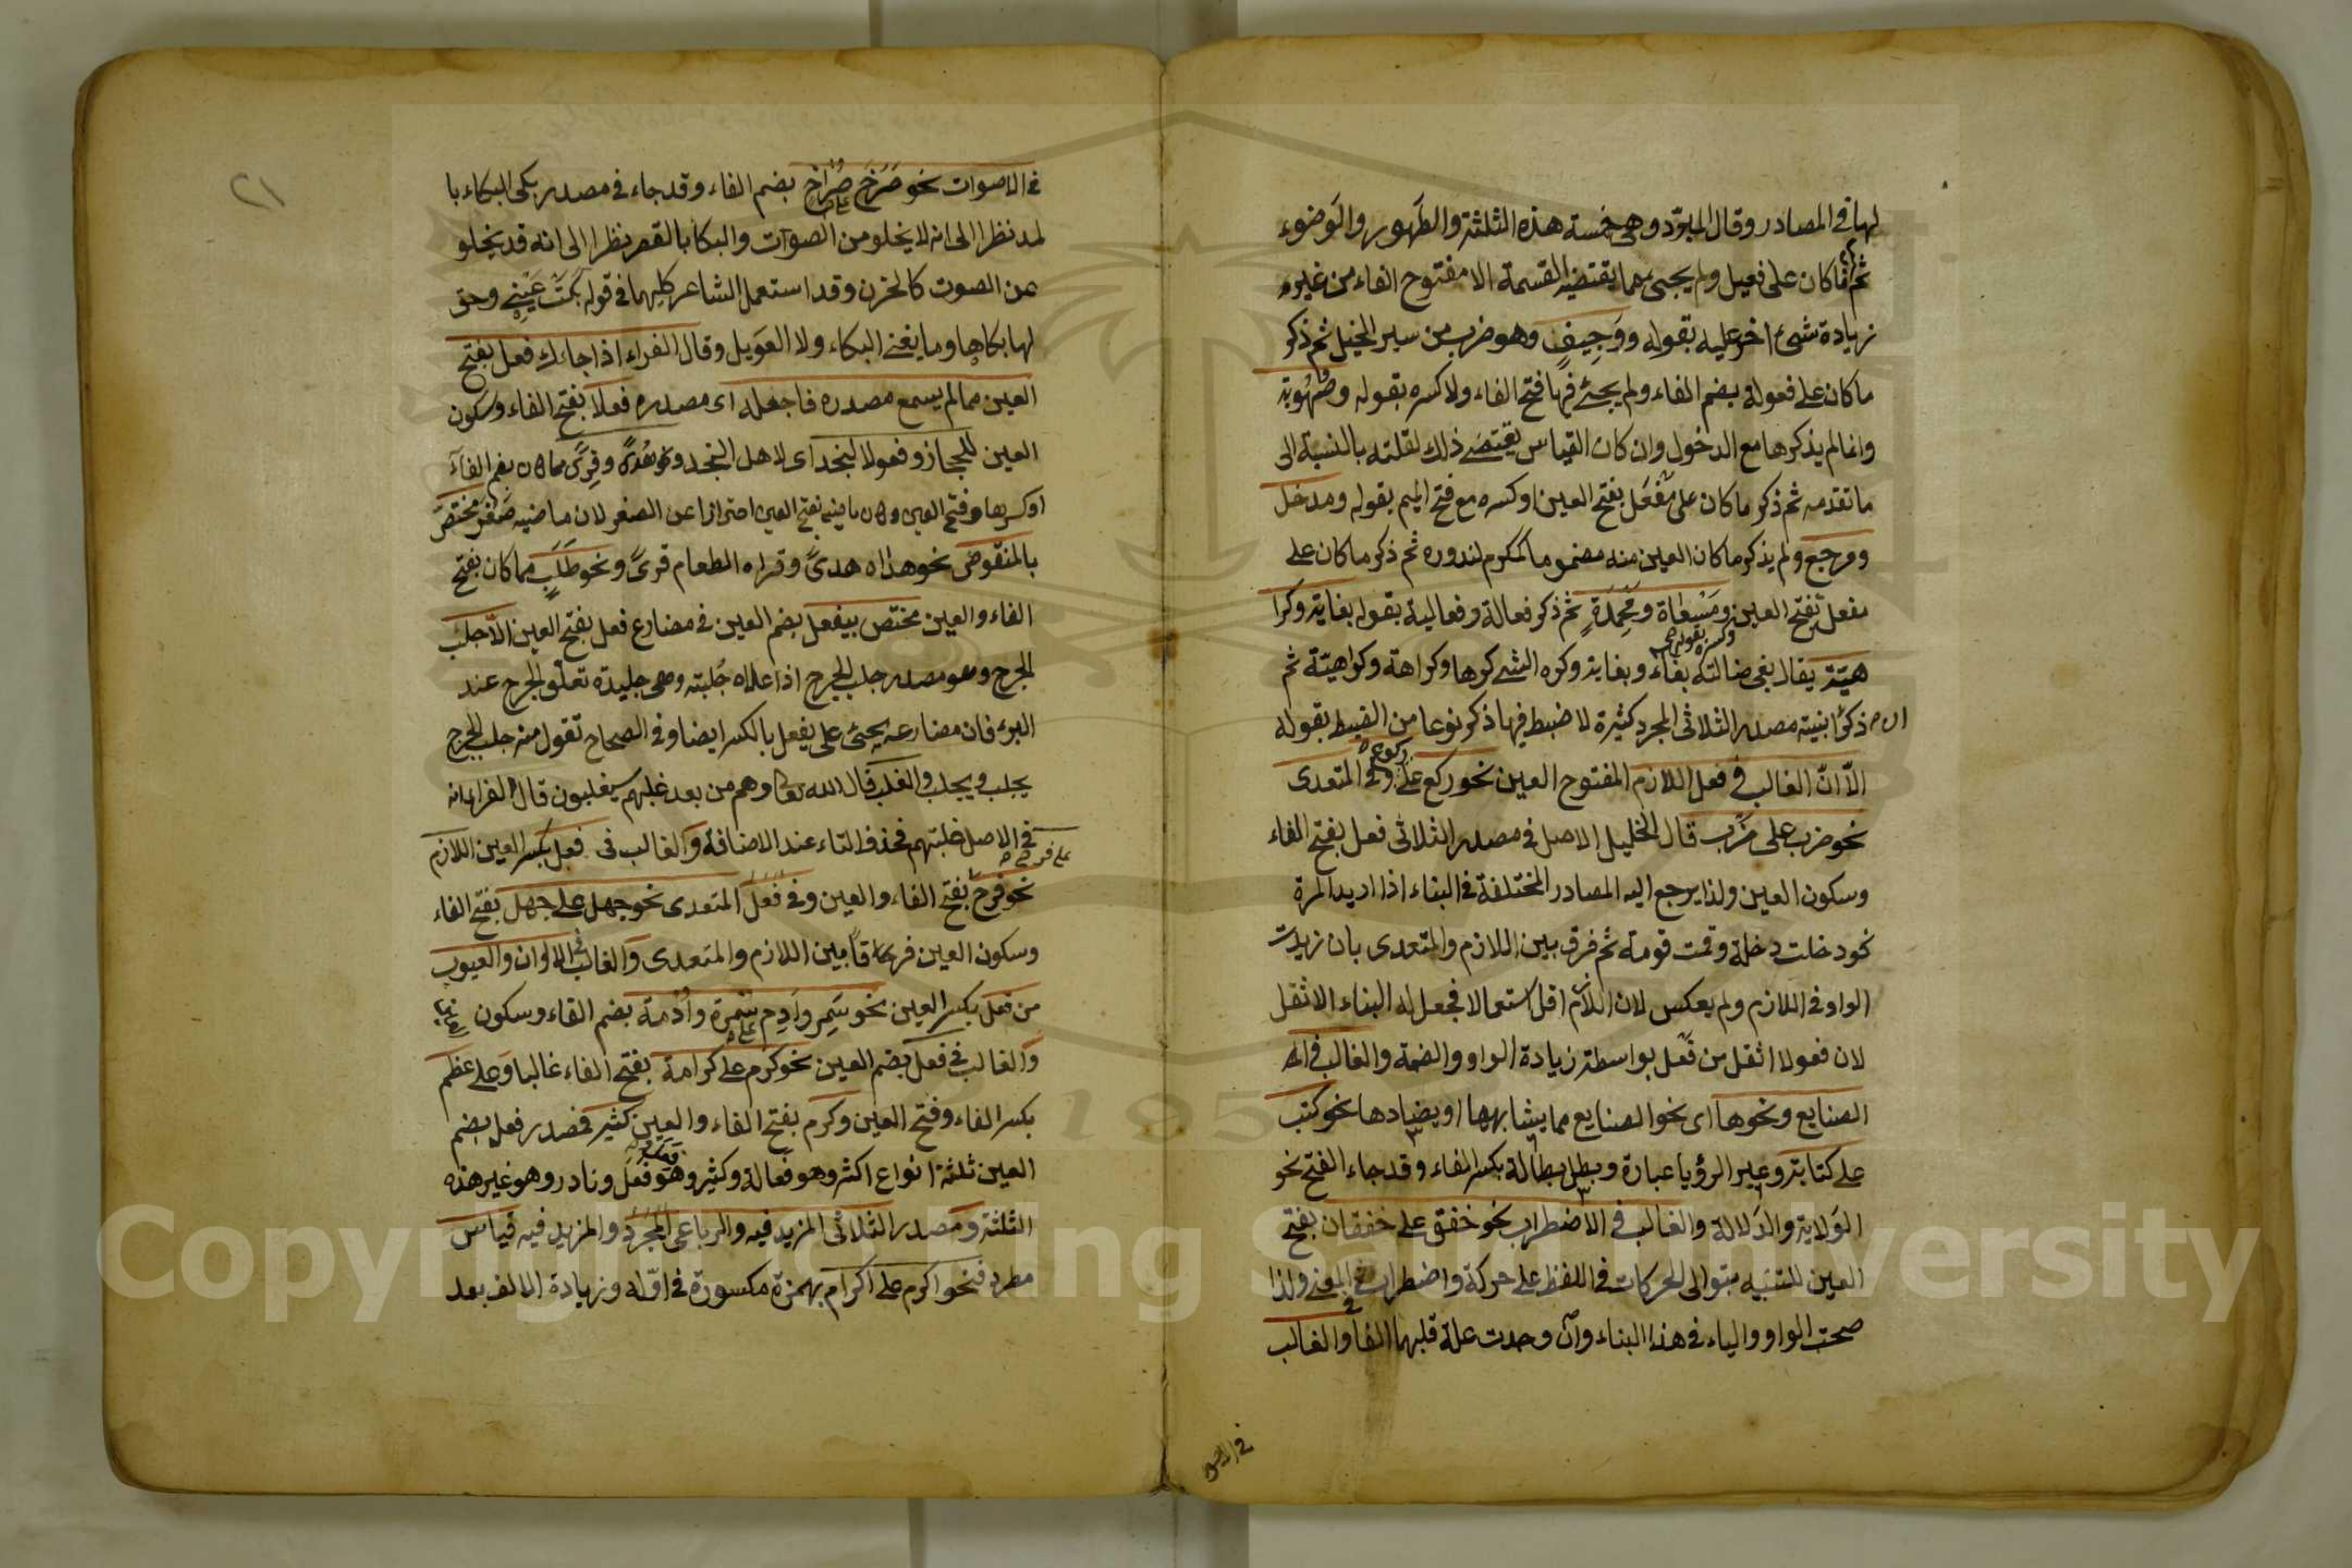 لها في المصادر وقال المبرّد وهي خمسة هذه الثلثة والطَهور والوَضوء
ثم ما كان على فعيل ولم يجئ مما يقتضيه القسمة الا مفتوح الفاء من غير
زيادة شئ اخر عليه بقوله ووَجِيفٍ وهو ضرب من سير الخيل ثم ذكر
ما كان على فعولة بضم الفاء ولم يجئ فيها فتح الفاء ولا كسره بقوله وصُهُوبة
وانما لم يذكرها مع الدخول وان كان القياس يقتضى ذلك لقلته بالنسبة الى
ما تقدمه ثم ذكر ما كان على مَفْعَل بفتح العين او كسره مع فتح الميم بقوله ومدخل
ومرجع ولم يذكر ما كان العين منه مضموما كمكرم لندوره ثم ذكر ما كان على
مفعلة بفتح العين وكسره بقوله ومَسْعاة ومَحْمِدَةٍ ثم ذكر فعالة وفعالية بقوله بغاية وكرا
هيّة يقال بغى ضالته بغاء وبغاية وكره الشئ كرها وكراهة وكراهيّة ثم
ذكر ابنية مصدر الثلاثى المجرد كثيرة لا ضبط فيها ذكر نوعا من الضبط بقوله
الّا انّ الغالب في فعل اللازم المفتوح العين نحو ركع على ركوع وفي المتعدى
نحو ضرب على ضَرْب قال الخليل الاصل في مصدر الثلاثى فعل بفتح الفاء
وسكون العين ولذا يرجع اليه المصادر المختلفة في البناء اذا اريد المرة
نحو دخلت دخلة وقمت قومة ثم فرق بين اللازم والمتعدى بان زيدت
الواو في اللازم ولم يعكس لان اللازم اقل استعمالا فجعل له البناء الاثقل
لان فعولا اثقل من فَعْل بواسطة زيادة الواو والضمة والغالب في
الصنايع ونحوها اى نحو الصنايع مما يشابهها او يضادها نحو كتب
على كتابة وعبر الرؤيا عبارة وبطل بطالة بكسر الفاء وقد جاء الفتح نحو
الوَلاية والدَلالة والغالب في الاضطراب نحو خفق على خفقان بفتح
العين للتنبيه بتوالى الحركات في اللفظ على حركة واضطراب في المعنى ولذا
صحت الواو والياء في هذا البناء وان وجدت علة قلبهما الفا والغالب
٢١
في الاصوات نحو صَرَخَ على صُراخ بضم الفاء وقد جاء في مصدر بكى البكاء با
لمد نظرا الى انه لا يخلو من الصوات والبكا بالقصر نظرا الى انه قد يخلو
عن الصوت كالحزن وقد استعمل الشاعر كليهما في قوله بَكَتْ عَيْنِى وحق
لها بكاها وما يغنى البكاء ولا العَويل وقال الفراء اذا جاءك فعل بفتح
العين مما لم يسمع مصدره فاجعله اى مصدره فعلا بفتح الفاء وسكون
العين للحجاز وفعولا لنجد اى لاهل النجد ونحو هُدًى وقِرًى مما كان بضم الفاء
او كسرها وفتح العين وكان ماضيه بفتح العين احترازا عن الصغر لان ماضيه صَغُرَ مختص
بالمنقوص نحو هداه هدىً وقراه الطعام قرىً ونحو طَلَبٍ مما كان بفتح
الفاء والعين مختص بيفعل بضم العين في مضارع فعل بفتح العين الّا جلب
الجرح وهو مصدر جلب الجرح اذا علاه جُلبته وهى جليدة تعلو الجرح عند
البرء فان مضارعه يجئ على يفعل بالكسر ايضا وفي الصحاح تقول منه جلب الجرح
يجلب ويجلب والغلب قال الله تعالى وهم من بعد غلبهم سيغلبون قال الفراء انه
في الاصل غلبتهم فحذف التاء عند الاضافة والغالب في فعل بكسر العين اللازم
نحو فرح على فرح بفتح الفاء والعين وفي فَعِلَ المتعدى نحو جهل على جهل بفتح الفاء
وسكون العين فرقا بين اللازم والمتعدى والغالب في الالوان والعيوب
من فعل بكسر العين نحو سَمِر وادِم على سُمْرة وأُدْمة بضم الفاء وسكون
والغالب في فعل بضم العين نحو كرُم على كرامة بفتح الفاء غالبا وعلى عظم
بكسر الفاء وفتح العين وكرم بفتح الفاء والعين كثير فمصدر فعل بضم
العين ثلثة انواع اكثر وهو فَعالة وكثير وهو فَعَل ونادر وهو غير هذه
الثلثة ومصدر الثلاثى المزيد فيه والرباعى المجرّد والمزيد فيه قياس
مطرد فنحو اكرم على اكرام بهمزة مكسورة في اوّله وزيادة الالف بعد
Copyright © King Saud University